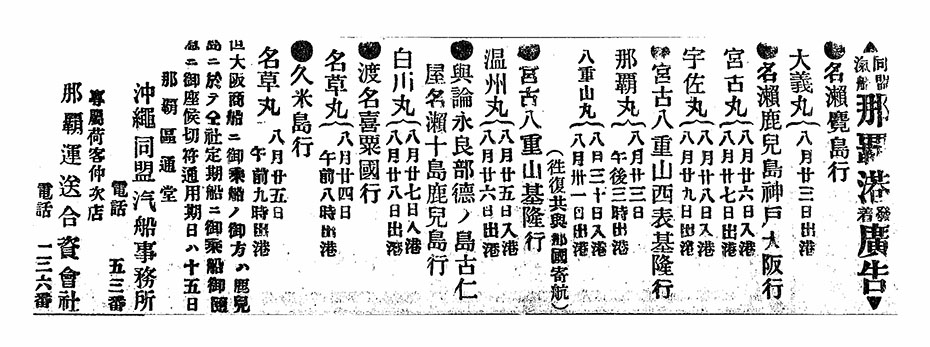 ▲同盟汽船那覇港發着廣告▼
●名瀬覺島行
大義丸 八月廿三日出港
●名瀬鹿兒島神戸大阪行
宮古丸 八月廿六日入港
八月廿七日出港
宇佐丸 八月廿八日入港
八月廿九日出港
●宮古八重山西表基隆行
那覇丸 八月廿三日
午後三時出港
八重山丸 八月三十日入港
八月卅一日出港
(往復共與那國寄航)
●宮古八重山基隆行
温州丸 八月廿五日入港
八月廿六日出港
●與論永良部德ノ島古仁
屋名瀬十島鹿兒島行
白川丸 八月廿七日入港
八月廿八日出港
●渡名喜粟國行
名草丸 八月廿四日
午前八時出港
●久米島行
名草丸 八月廿五日
午前九時出港
但大阪商船ニ御乘船ノ御方ハ鹿兒
島ニ於テ全社定期船ニ御乘船御隨
意ニ御座候切符通用期日ハ十五日
那覇區通堂
沖繩同盟汽船事務所
電話 五三番
專屬荷客仲次店
那覇運送合資會社
電話 一三六番